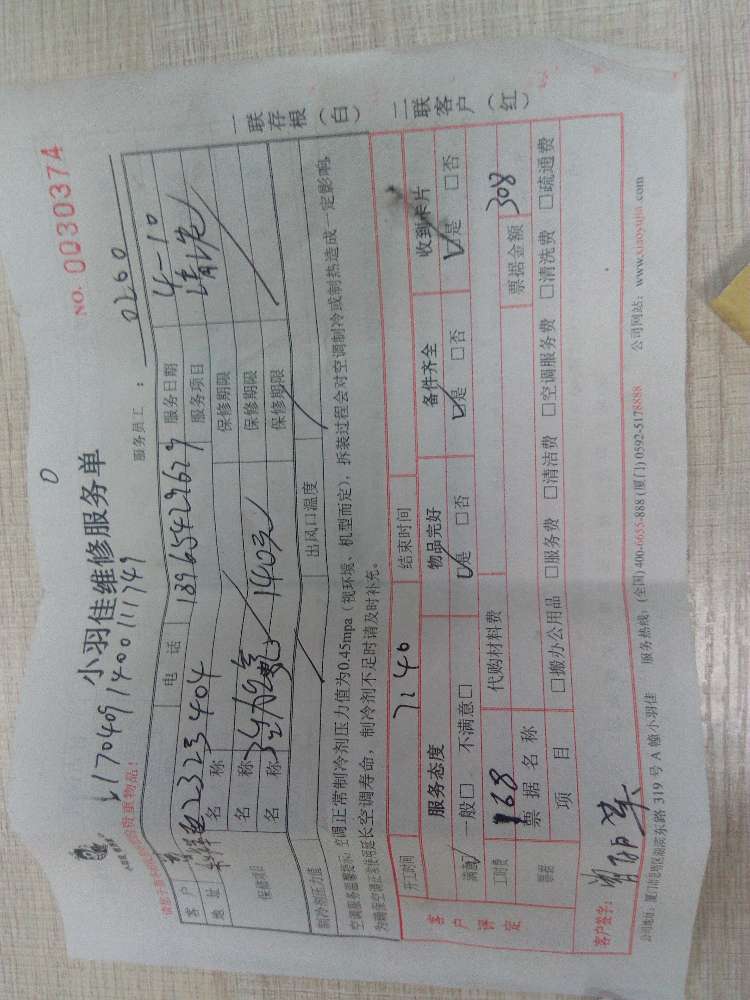 小羽佳维修服务单
NO. 0030374
L170409140011749
服务员工： 0260
请您予保管好您的贵重物品！
客户 电话 18965422627 服务日期 4-10
地址 2323404 服务项目 清洗
名称 保修期限
保修项目 名称 140元 保修期限
名称 保修期限
制冷剂压力值 出风口温度
空调服务温馨提示：空调正常制冷剂压力值为0.45mpa（视环境、机型而定），拆装过程会对空调制冷或制热造成一定影响，
为确保空调正常使用延长空调寿命，制冷剂不足时请及时补充。
一联存根（白） 二联客户（红）
开工时间 7:40 结束时间
客户评定 服务态度 物品完好 备件齐全 收到卡片
满意 一般□ 不满意□ □是 □否 □是 □否 □是 □否
工时费 168 代购材料费
票据 票据名称 票据金额 308
项目 □搬办公用品 □服务费 □清洁费 □空调服务费 □清洗费 □疏通费
客户签字：
公司地址：厦门市思明区湖滨东路 319 号 A 幢小羽佳 服务热线：(全国) 400-6655-888 (厦门) 0592-5178888 公司网站：www.xiaoyujia.com